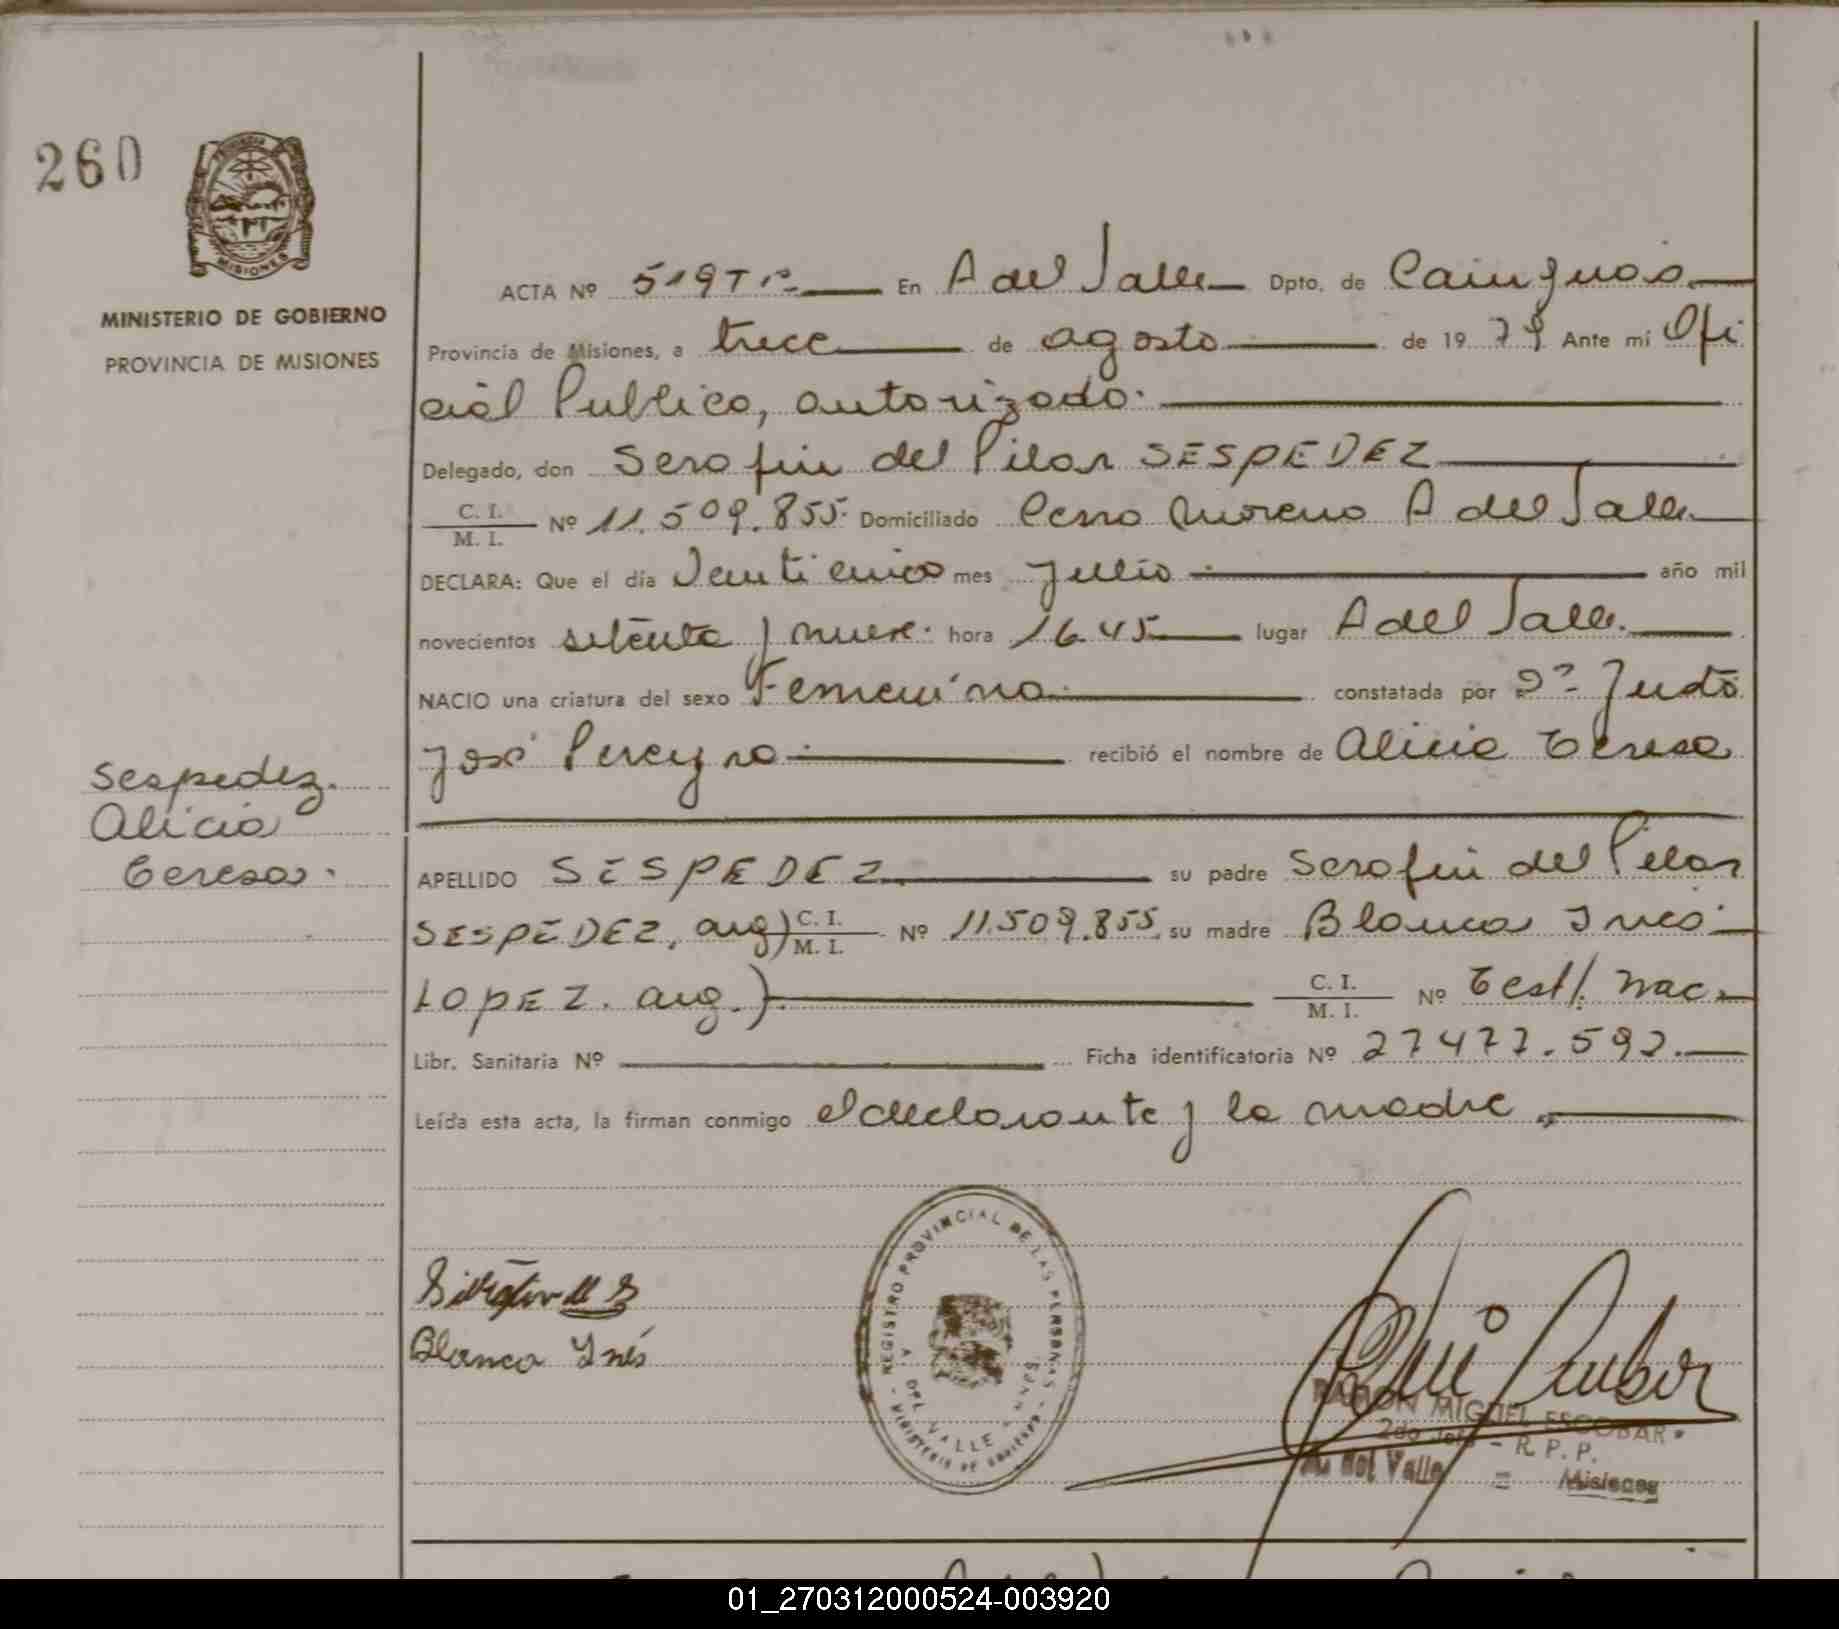 260
MINISTERIO DE GOBIERNO
PROVINCIA DE MISIONES
ACTA Nº 519 Tº En A del Valle Dpto. de Cainguás
Provincia de Misiones, a trece de agosto de 1979 Ante mi Ofi
cial Publico, autorizado.
Delegado, don Serafin del Pilar SESPEDEZ
C. I.
M. I. Nº 11.509.855. Domiciliado Cerro Moreno A del Valle
DECLARA: Que el día Veinticinco mes Julio año mil
novecientos setenta y nueve. hora 16.45 lugar A del Valle.
NACIO una criatura del sexo Femenino constatada por Justo
José Pereyra recibió el nombre de Alicia Teresa
Sespedez.
Alicia
Teresa.
APELLIDO SESPEDEZ su padre Serafin del Pilar
SESPEDEZ, arg) C. I. M. I. Nº 11.509.855. su madre Blanca Ines
LOPEZ. arg.) C. I. M. I. Nº Test/. nac.
Libr. Sanitaria Nº Ficha identificatoria Nº 27.477.592.
Leída esta acta, la firman conmigo el declarante y la madre.
Blanca Inés
REGISTRO PROVINCIAL DE LAS PERSONAS
A. DEL VALLE
RAMON MIGUEL ESCOBAR
2do Jefe - R. P. P.
A. del Valle = Misiones
01_270312000524-003920